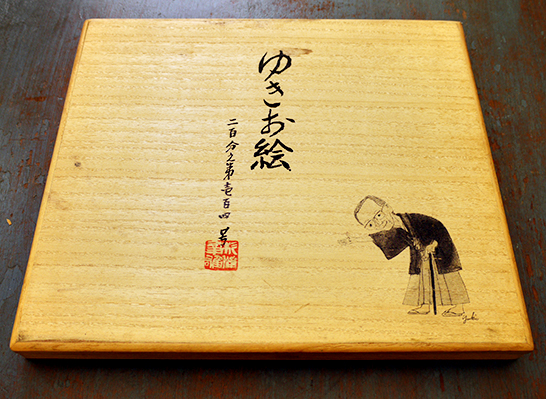 ゆきお絵
二百分之第壱百四号
Yuki